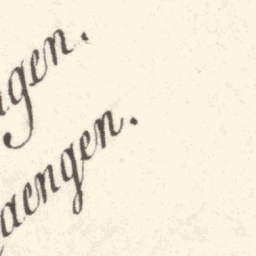 gen.
aengen.